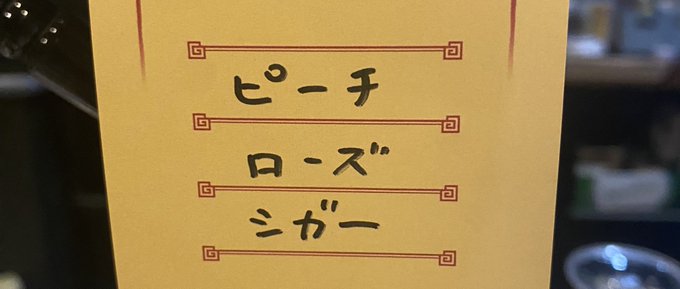 ピーチ
ローズ
シガー